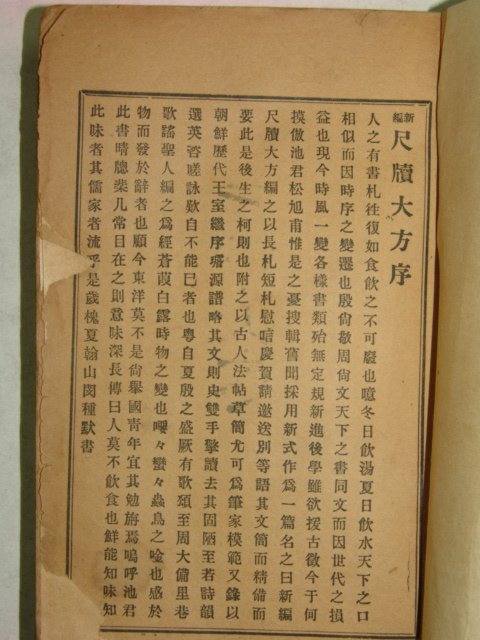 新編尺牘大方序
人之有書札徃復如食飮之不可廢也噫冬日飮湯夏日飮水天下之口
相似而因時序之變遷也殷尙敬周尙文天下之書同文而因世代之損
益也現今時風一變各樣書類殆無定規新進後學雖欲援古徵今于何
摸倣池君松旭甫惟是之憂搜輯舊聞採用新式作爲一篇名之曰新編
尺牘大方編之以長札短札慰喑慶賀請邀送別等語其文簡而精備而
要此是後生之柯則也附之以古人法帖草簡尤可爲筆家模範又錄以
朝鮮歷代王室繼序璿源譜略其文則史雙手擎讀去其固陋至若詩韻
選英咨嗟詠歎自不能已者也粤自夏殷之盛厥有歌頌至周大備里巷
歌謠聖人編之爲經蒼葭白露時物之變也嚶々蠻々蟲鳥之唫也感於
物而發於辭者也顧今東洋莫不是尙舉國靑年宜其勉旃焉嗚呼池君
此書晴牕棐几常目在之則意味深長傳曰人莫不飮食也鮮能知味知
此味者其儒家者流乎是歲槐夏翰山閔種默書